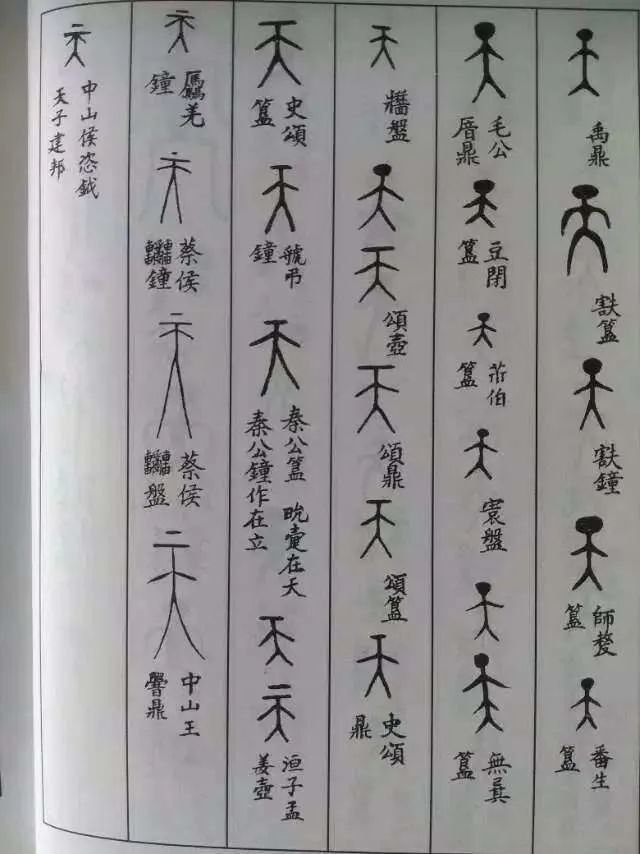 禹鼎
㝬簋
㝬鐘
師
簋
番生
簋
毛公
鼎
豆閉
簋
伯
簋
寰盤
無㠱
簋
牆盤
頌壺
頌鼎
頌簋
史頌
鼎
史頌
簋
虢弔
鐘
秦公簋 畯疐在天
秦公鐘作在立
洹子孟
姜壺
羌
鐘
蔡侯
鐘
蔡侯
盤
中山王
鼎
中山侯恣鉞
天子建邦